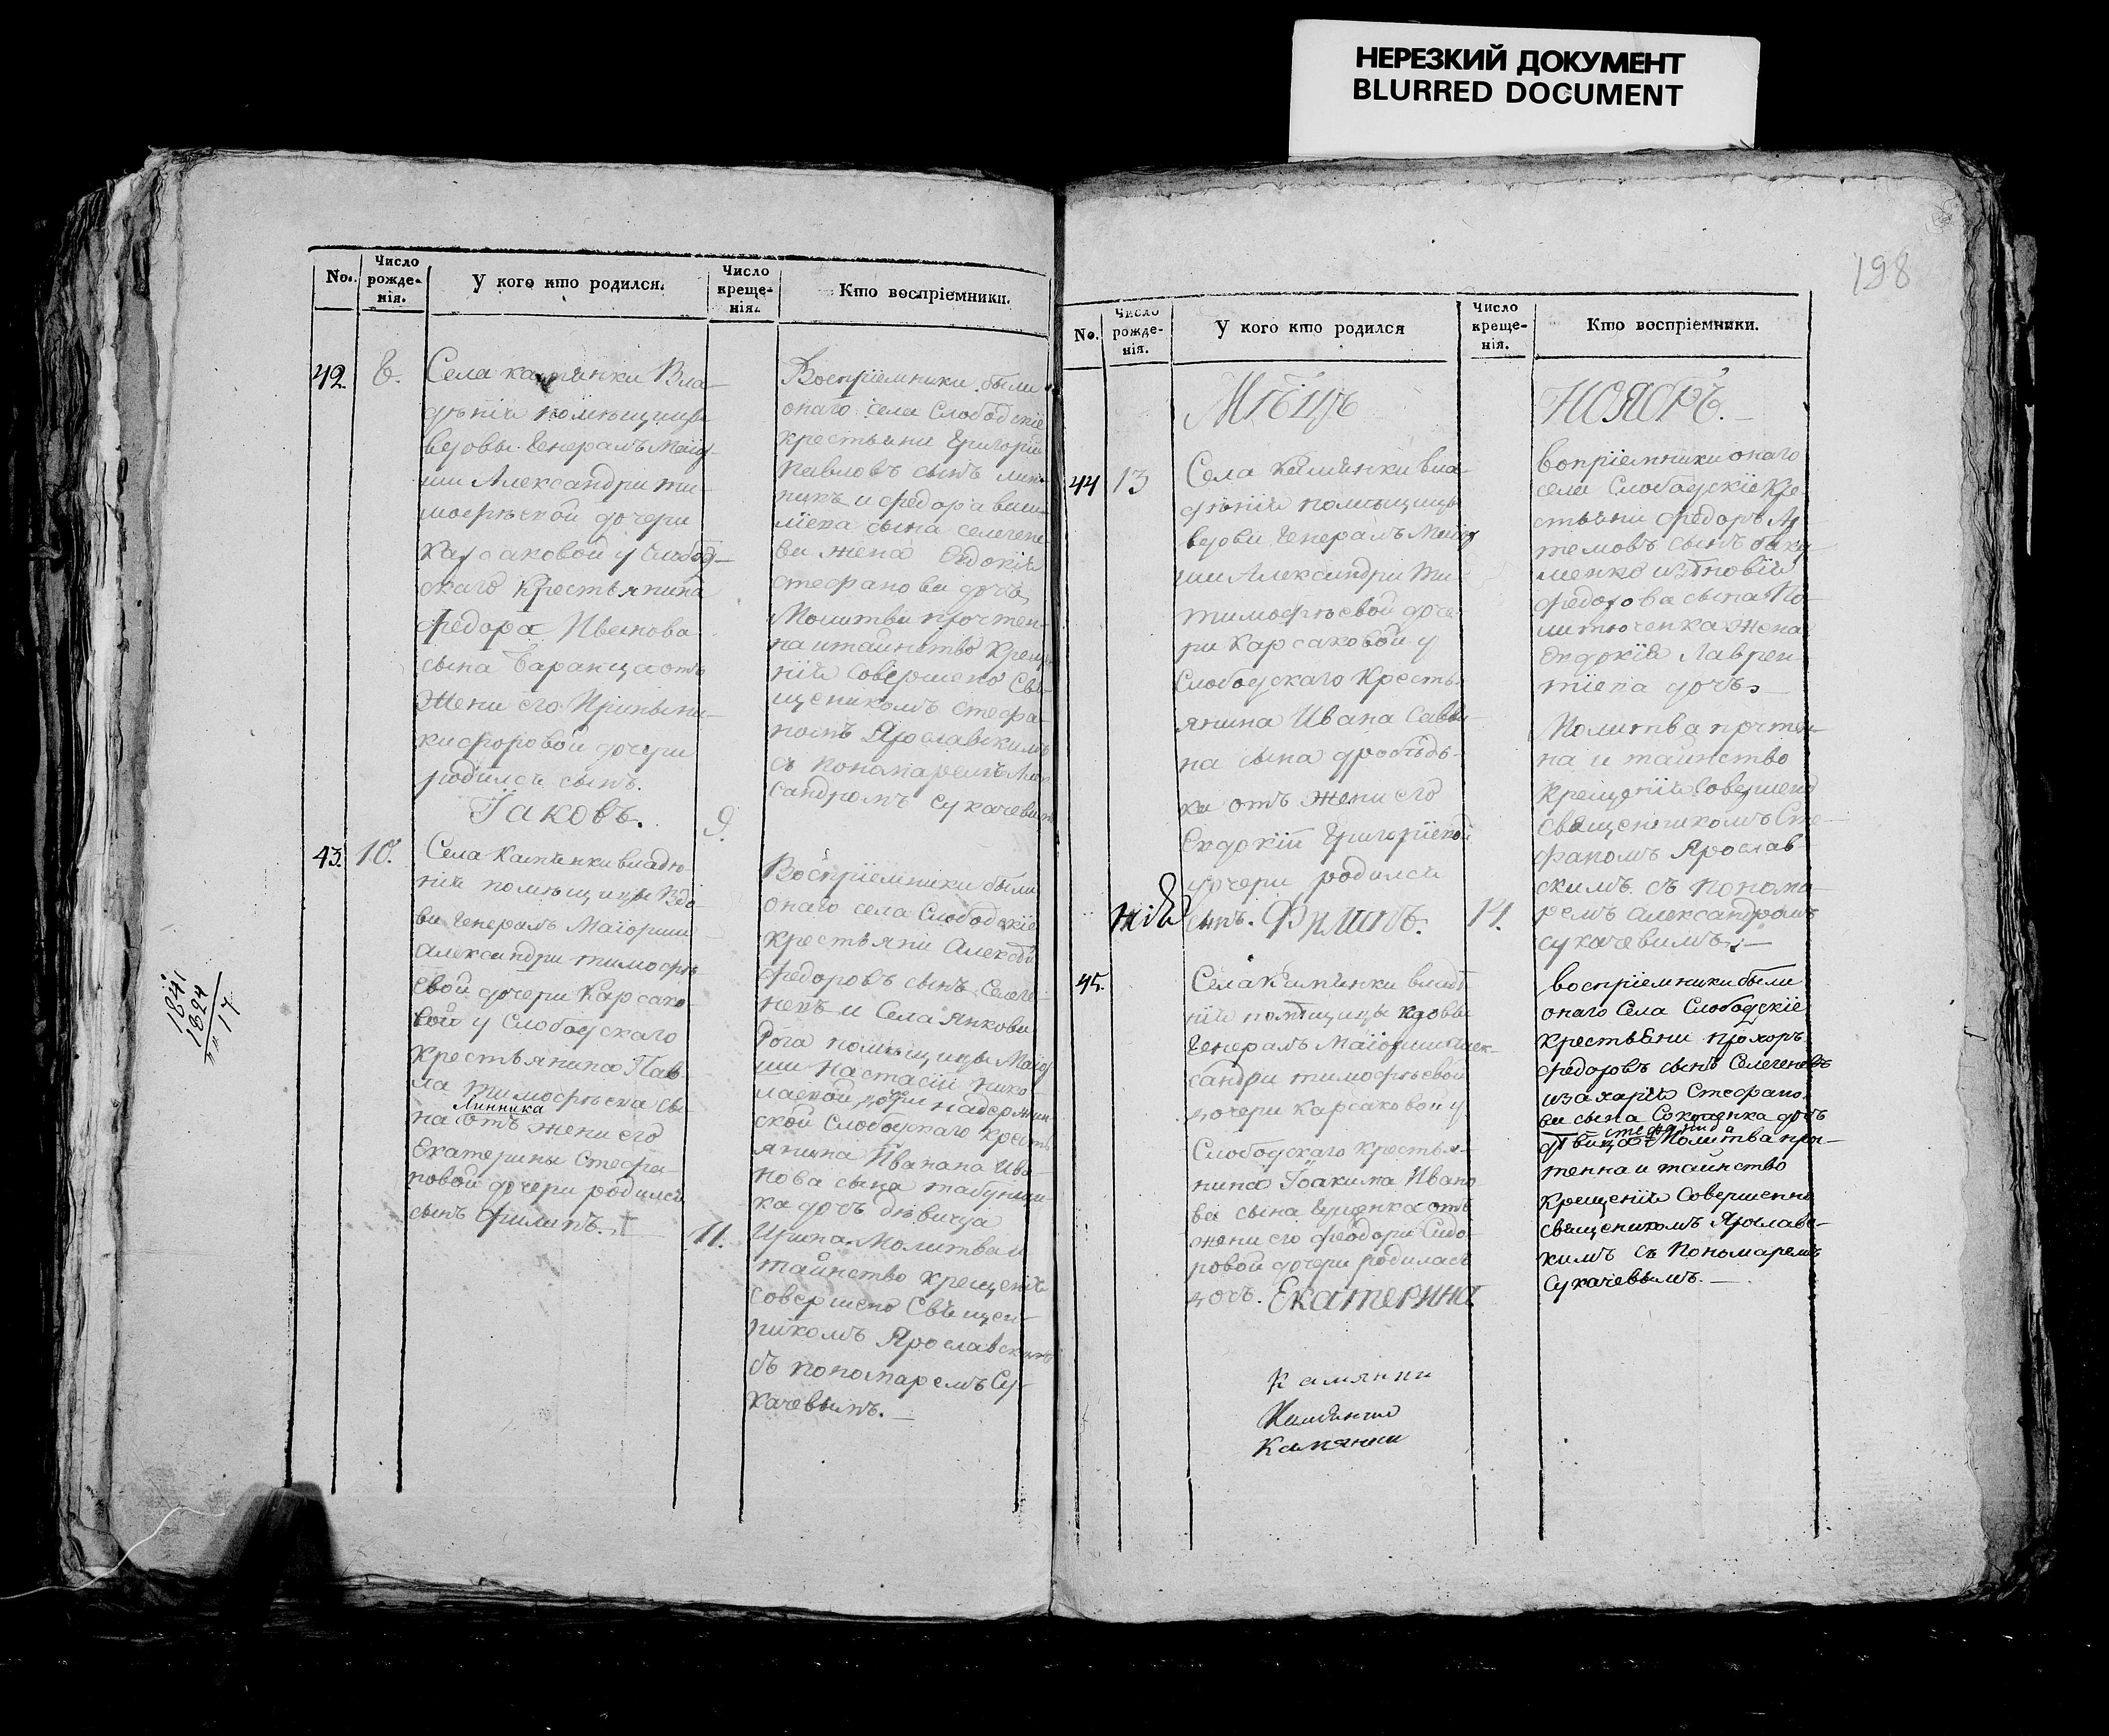 НЕРЕЗКИЙ ДОКУМЕНТ
BLURRED DOCUMENT
198
No.
Число рожденія.
У кого кто родился.
Число крещенія.
Кто воспріемники.
42.
Села камянки Вла-
дѣнія помѣщицы
вдовы Генералъ Маіор-
ши Александри ти-
мофѣевой дочери
Карсаковой у слобод-
скаго крестьянина
Федора Иванова
сына Баранца отъ
жени его Ирины ни-
кифоровой дочери
родился сынъ.
Іаковъ.
9.
Воспріемники были
онаго села Слободскіе
крестьяни Григорій
Павловъ сынъ лин-
никъ и федора васи-
ліева сына селегене
ва жена Евдокія
стефанова дочь
Молитва прочтен-
на и таинство креще
нія совершено Свя-
щеникомъ стефа-
номъ Ярославскимъ
съ пономаремъ Алек
сандромъ сукачевимъ
43.
10.
Села Камянки владѣ-
нія помѣщицы вдо-
ви Генералъ Маіорши
александри тимофѣ
евой дочери Карсако-
вой у Слободскаго
крестьянина Пав-
ла тимофѣева сы-
Линника
на отъ жени его
Екатерины Стефа-
новой дочери родился
сынъ Филипъ. †
11.
Воспріемники были
онаго села Слободскіе
крестьяни Алексѣй
федоровъ сынъ Селеге-
невъ и Села Янкова
Рога помѣщицы Маіор
ши настасіи нико-
лаевой дочери
ской Слободскаго кресть
янина Ивана Ива-
нова сына табунщи-
ка дочь дѣвица
Ирина. Молитва и
таинство крещенія
совершено Священ-
никомъ Ярославскимъ
съ пономаремъ Су-
качевымъ.—
1841
1824
17
No.
Число рожденія.
У кого кто родился
Число крещенія.
Кто воспріемники.
Мѣсяцъ
НОЯБРЬ.—
44
13
Села Камянки вла-
дѣнія помѣщицы
вдови Генералъ Маіор
ши Александри Ти-
тимофѣевой доче
ри Карсаковой у
Слободскаго Кресть-
янина Ивана Сави-
на сына дробядь-
ка отъ жени его
Евдокіи Григоріевой
дочери родился
сынъ. Филипъ.
14.
вопріемники онаго
села Слободскіе Кре-
стьяни федоръ Ар
темовъ сынъ
менко и Зѣновія
федорова сына По-
литюченка жена
Евдокія Лаврен-
тіева дочь.—
Молитва прочтен-
на и таинство
Крещенія Совершено
Священникомъ Сте-
фаномъ Ярослав-
скимъ съ понома-
ремъ александромъ
сукачевимъ.—
45.
Села Камянки владѣ-
нія помѣщицы вдовы
Генералъ Маіорши Алек-
сандри тимофѣевой
дочери Карсаковой у
Слободскаго Кресть-
нина Іоакима Ивано
ва сына Гриценка отъ
жени его Феодори Сидо-
ровой дочери родилась
дочь. Екатерина
воспріемники были
онаго Села Слободскіе
крестьяни прохоръ
федоровъ сынъ Селегеневъ
и захарія Стефано
ва сына Сокценка дочь
стефанида
дѣвица Молитва про-
чтенна и таинство
крещенія Совершенно
священикомъ Ярославс-
кимъ съ Пономаремъ
Сукачевымъ.—
Камянки
Камянки
Камянки